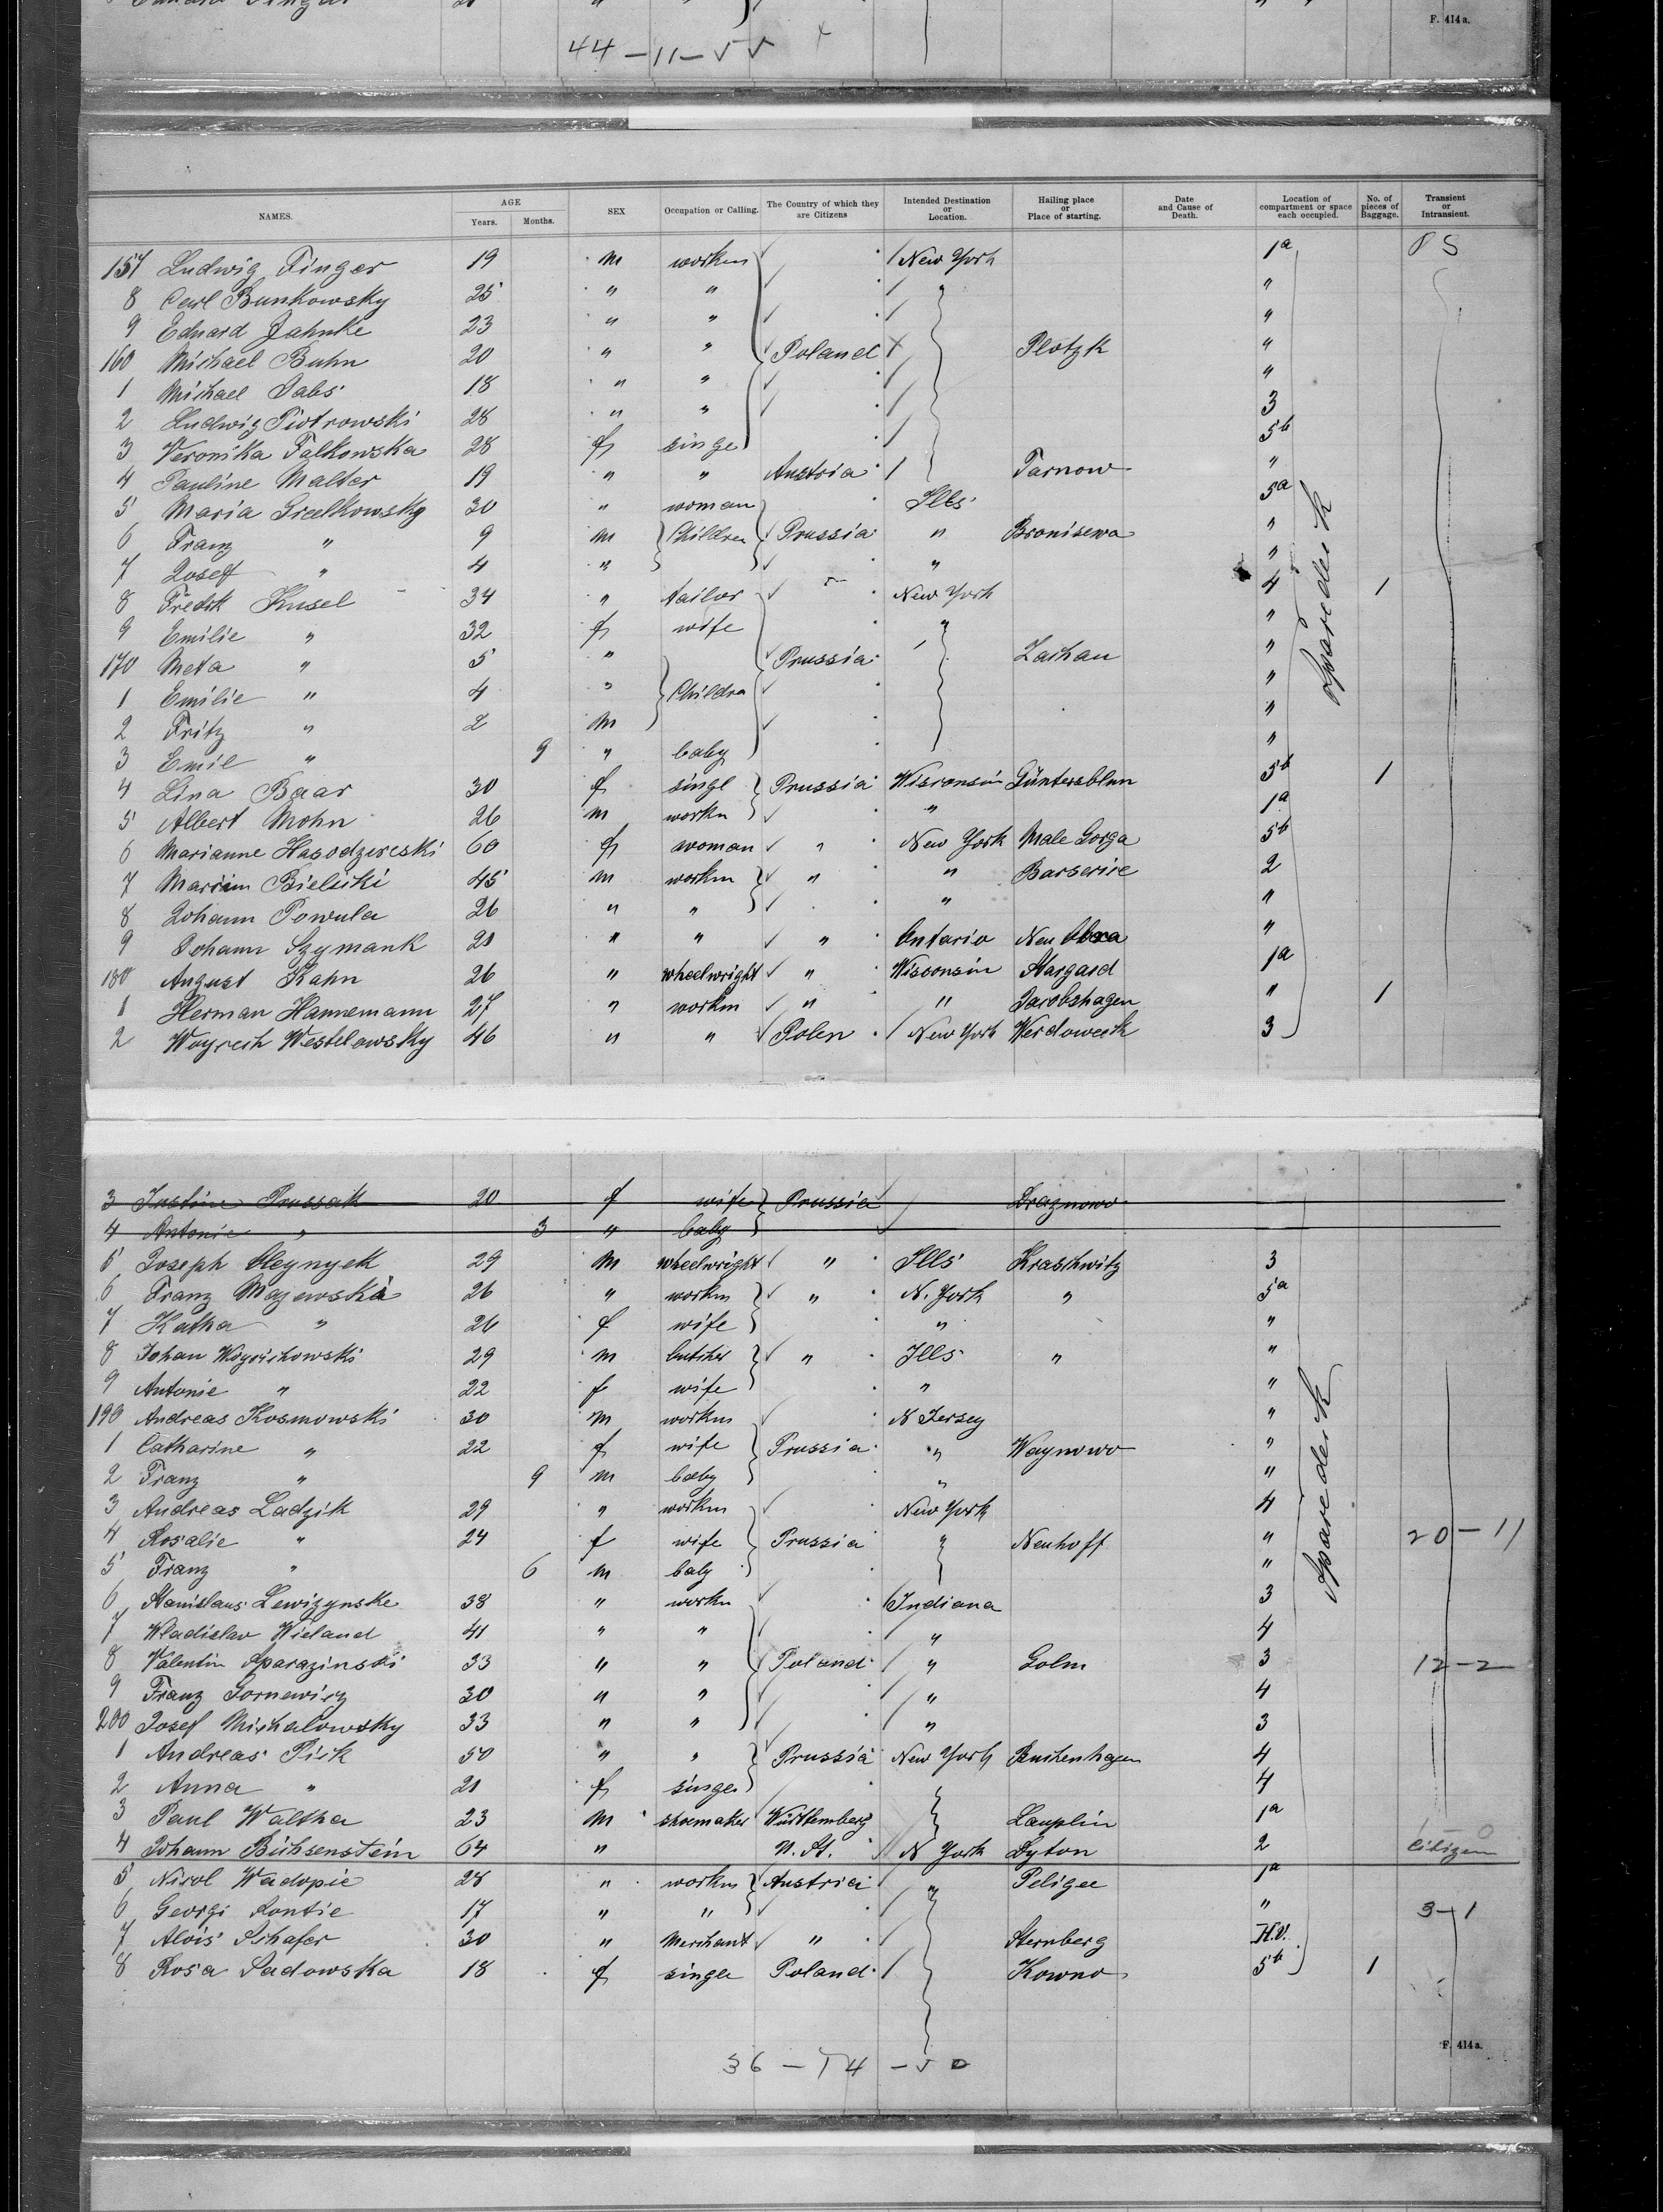 F. 414a.
44-11-55
NAMES. AGE Years. Months. SEX Occupation or Calling. The Country of which they are Citizens Intended Destination or Location. Hailing place or Place of starting. Date and Cause of Death. Location of compartment or space each occupied. No. of pieces of Baggage. Transient or Intransient.
157 Ludwig Finger 19 m workm New York 1a P S
8 Carl Bunkowsky 25 " " "
9 Eduard Jahnke 23 " " "
160 Michael Buhn 20 " " Poland Plotzk "
1 Michael Dabs 18 " " "
2 Ludwig Piotrowski 28 " " 3
3 Veronika Falkowska 28 f singe 5b
4 Pauline Malter 19 " " Austria Tarnow "
5 Maria Grelkowsky 30 " woman Ills 5a
6 Franz " 9 m Children Prussia " Bronisewa "
7 Josef " 4 " " "
8 Fredk Kusel 34 " tailor New York 4 1
9 Emilie " 32 f wife " "
170 Meta " 5 " Prussia Zachau "
1 Emilie " 4 " Childrn "
2 Fritz " 2 m "
3 Emil " 9 " baby "
4 Lina Baar 30 f singl Prussia Wisconsin Güntersblum 5b 1
5 Albert Mohn 26 m workn " 1a
6 Marianne 60 f woman " New York Male Gorga 5b
7 Bielicki 45 m workm " " 2
8 Johann Powula 26 " " " "
9 Johann Szymank 21 " " " Ontario Neu Obra "
180 August Kahn 26 " wheelwright " Wisconsin Stargard 1a
1 Herman Hannemann 27 " workm " " Jacobshagen " 1
2 Woyciech Westelowsky 46 " " Polen New York 3
Sparedeck
3 Justine Prussak 20 f wife Prussia
4 Antonie " 3 " baby
5 Joseph Oleynyek 29 m wheelwright " Ills Kraschwitz 3
6 Franz Majewska 26 " workm " N. York " 5a
7 Katha " 26 f wife " "
8 Johan Woycichowski 29 m butcher " Ills " "
9 Antonie " 22 f wife " "
190 Andreas Kosmowski 30 m workm N Jersey "
1 Catharine " 22 f wife Prussia " Waynowo "
2 Franz " 9 m baby " "
3 Andreas Ladzik 29 " workm New York 4
4 Rosalie " 24 f wife Prussia " Neuhoff " 20-11
5 Franz " 6 m baby "
6 Stanislaus Lewizynske 38 " workn Indiana 3
7 Wladislav Wieland 41 " " " 4
8 Valentin Sparazinski 33 " " Poland " Golm 3 12-2
9 Franz Gornewicz 30 " " " 4
200 Josef Michalowsky 33 " " " 3
1 Andreas 50 " " Prussia New York 4
2 Anna " 21 f singe 4
3 Paul Waltha 23 m shoemaker Württemberg Lauplin 1a
4 Johann Büchsenstein 64 " U. St. N York Dyton 2 citizen
5 Nicol Wadopie 28 " workm Austria " Peligee 1a
6 Georgi Rontie 17 " " " 3-1
7 Alois Schafer 30 " Merchant " Sternberg H.V.
8 Rosa Sadowska 18 f singe Poland Kowno 5b 1
Sparedeck
F. 414a.
36-14-50